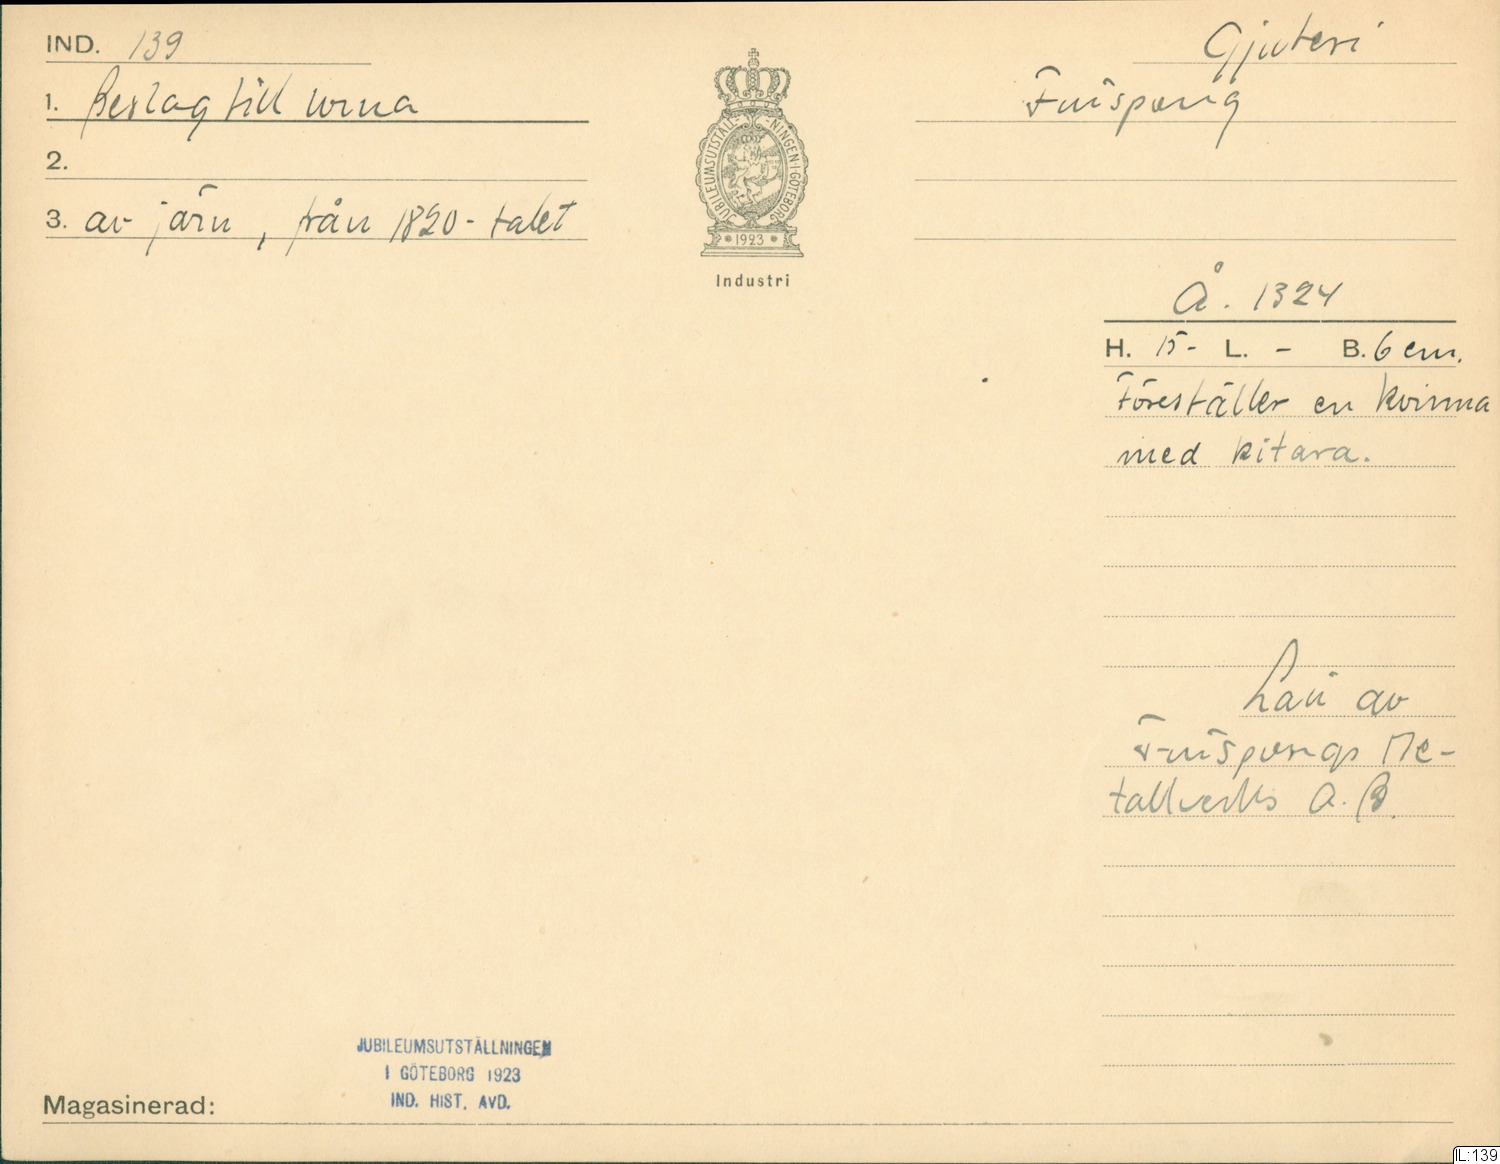 IND. 139
Gjuteri
1. Beslag till urna
Finspong
2.
3. av järn, från 1820-talet
JUBILEUMSUTSTÄLL-NINGEN I GÖTEBORG
1923
Industri
Å. 1324
H. 15- L. - B. 6 cm.
Föreställer en kvinna
med kitara.
Lån av
Finspongs Me-
tallverks A.B.
JUBILEUMSUTSTÄLLNINGEN
I GÖTEBORG 1923
IND. HIST. AVD.
Magasinerad:
IL:139